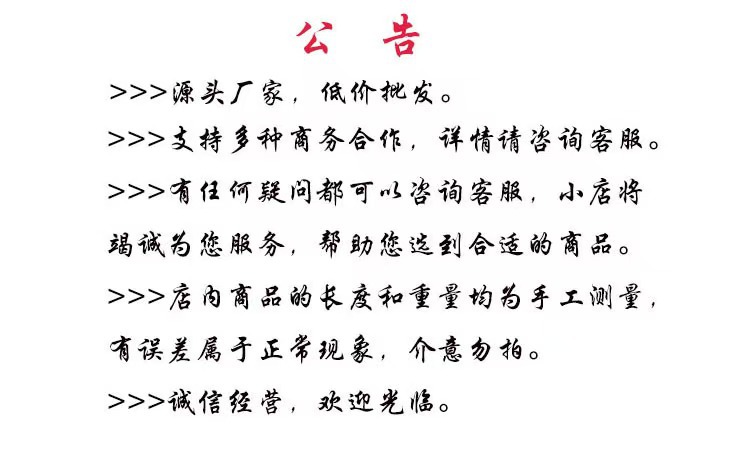 公 告
>>>源头厂家，低价批发。
>>>支持多种商务合作，详情请咨询客服。
>>>有任何疑问都可以咨询客服，小店将
竭诚为您服务，帮助您选到合适的商品。
>>>店内商品的长度和重量均为手工测量，
有误差属于正常现象，介意勿拍。
>>>诚信经营，欢迎光临。